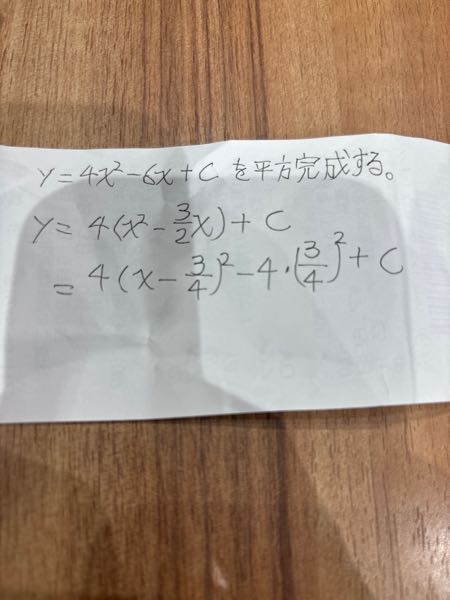 y=4x²-6x+C を平方完成する。
y= 4(x²-3/2x)+C
= 4(x-3/4)²-4・(3/4)²+C